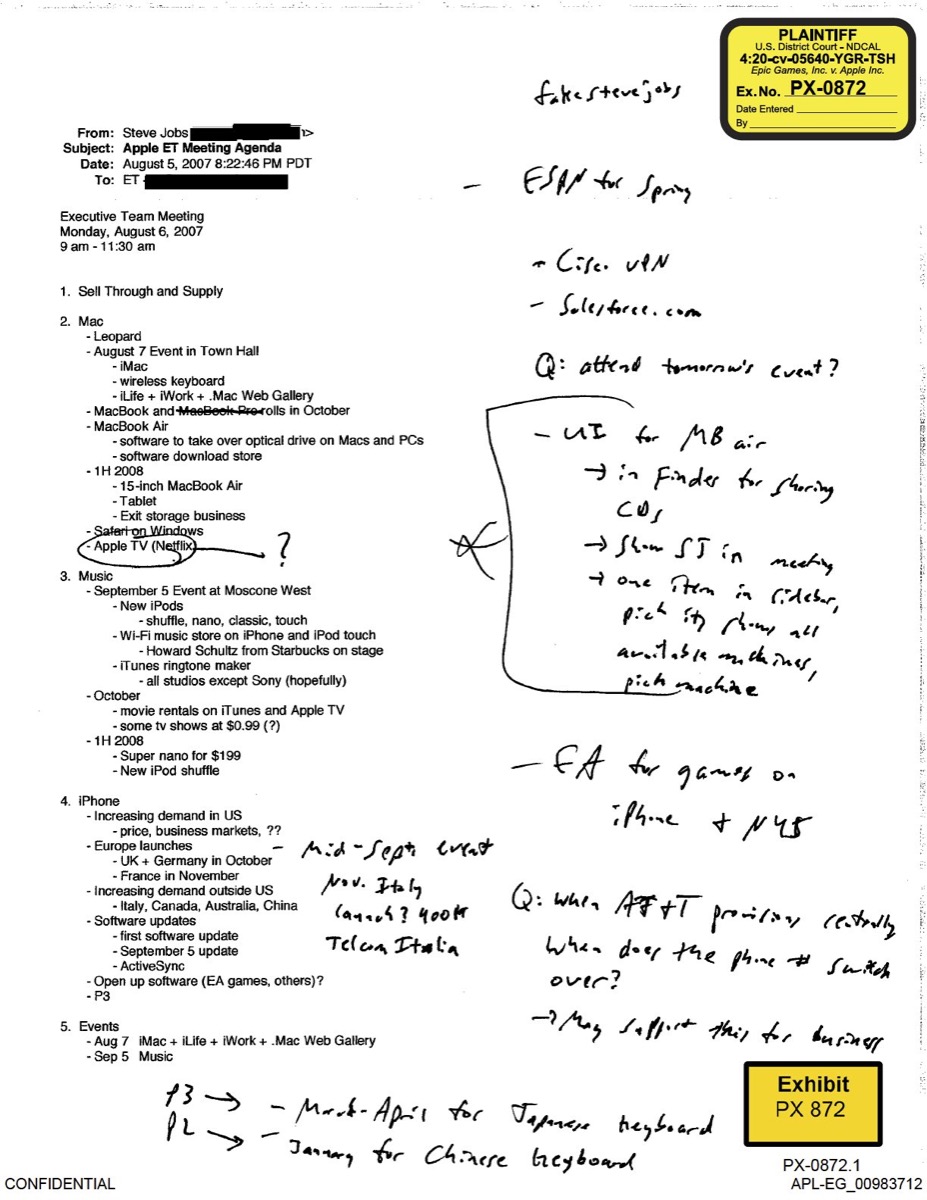 PLAINTIFF
U.S. District Court - NDCAL
4:20-cv-05640-YGR-TSH
Epic Games, Inc. v. Apple Inc.
Ex. No. PX-0872
Date Entered
By
fakestevejobs
From: Steve Jobs
Subject: Apple ET Meeting Agenda
Date: August 5, 2007 8:22:46 PM PDT
To: ET
- ESPN for Spring
Executive Team Meeting
Monday, August 6, 2007
9 am - 11:30 am
- Cisco VPN
- Salesforce.com
Q: attend tomorrow's event?
1. Sell Through and Supply
2. Mac
- Leopard
- August 7 Event in Town Hall
- iMac
- wireless keyboard
- iLife + iWork + .Mac Web Gallery
- MacBook and MacBook Pro rolls in October
- MacBook Air
- software to take over optical drive on Macs and PCs
- software download store
- 1H 2008
- 15-inch MacBook Air
- Tablet
- Exit storage business
- Safari on Windows
- Apple TV (Netflix) ?
- UI for MB air
→ in Finder for sharing
CDs
→ Show SJ in meeting
→ one item in sidebar,
pick it, shows all
available machines,
pick machine
3. Music
- September 5 Event at Moscone West
- New iPods
- shuffle, nano, classic, touch
- Wi-Fi music store on iPhone and iPod touch
- Howard Schultz from Starbucks on stage
- iTunes ringtone maker
- all studios except Sony (hopefully)
- October
- movie rentals on iTunes and Apple TV
- some tv shows at $0.99 (?)
- 1H 2008
- Super nano for $199
- New iPod shuffle
- EA for games on
iPhone + N45
4. iPhone
- Increasing demand in US
- price, business markets, ??
- Europe launches
- UK + Germany in October
- France in November
- Increasing demand outside US
- Italy, Canada, Australia, China
- Software updates
- first software update
- September 5 update
- ActiveSync
- Open up software (EA games, others)?
- P3
- Mid-Sept event
Nov. Italy
launch? 400K
Telecom Italia
Q: When AT+T provisions centrally
when does the phone # switch
over?
→ May support this for business
5. Events
- Aug 7 iMac + iLife + iWork + .Mac Web Gallery
- Sep 5 Music
P3 → - March-April for Japanese keyboard
P2 → - January for Chinese keyboard
Exhibit
PX 872
PX-0872.1
CONFIDENTIAL
APL-EG_00983712